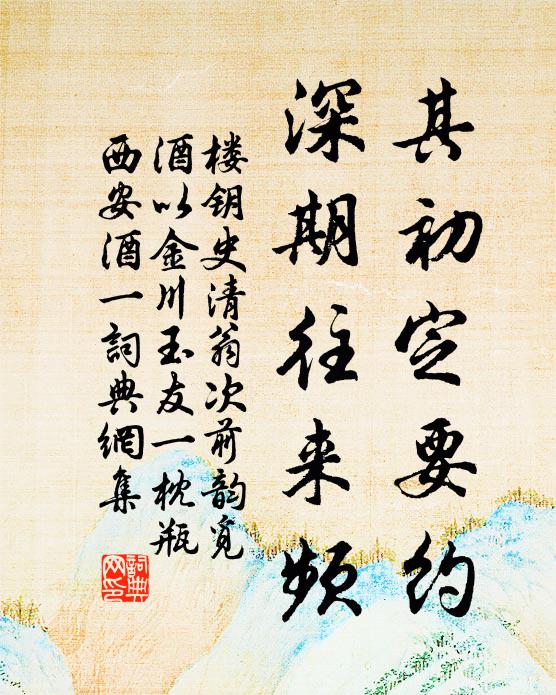 其初定要约
深期往来频
楼钥史清翁次前韵觅
酒以金川玉友一枕瓶
西安酒一詞典網集
詞典
网印